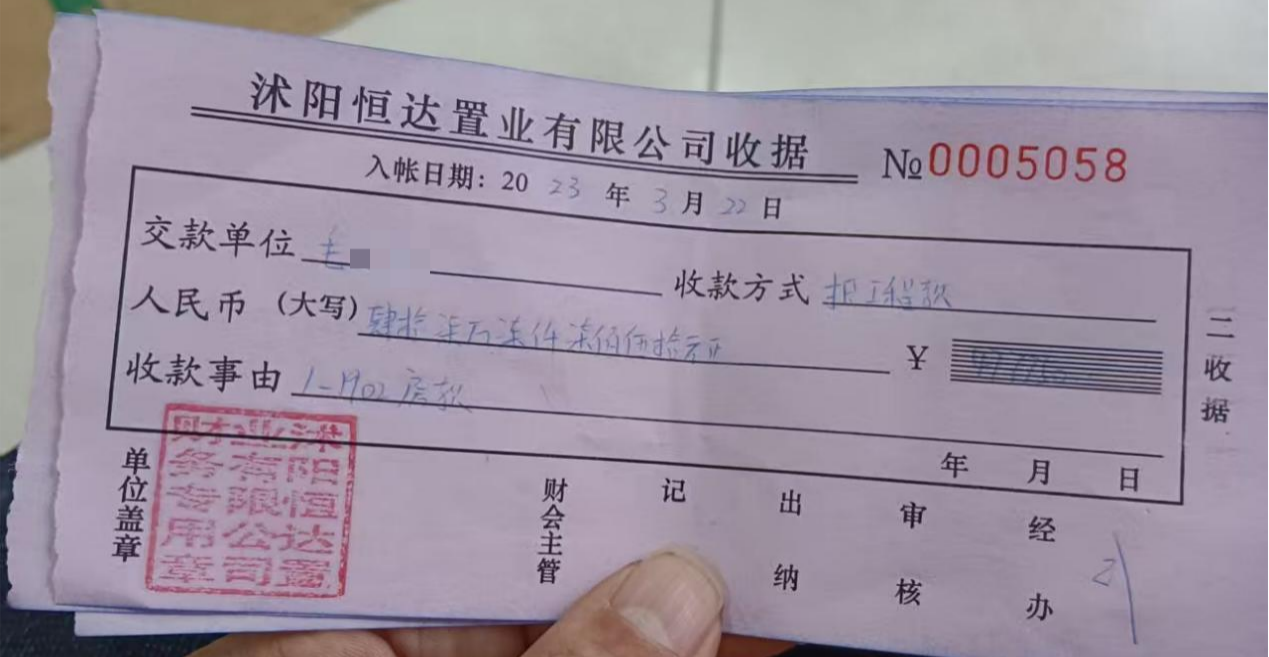 沭阳恒达置业有限公司收据
№0005058
入帐日期：2023年3月22日
交款单位 毛
收款方式 抵工程款
人民币（大写）肆拾柒万柒仟柒佰伍拾元正
￥477750
收款事由 1-1902房款
年 月 日
二收据
单位盖章
沭阳恒达置业有限公司财务专用章
财会主管
记
出纳
审核
经办